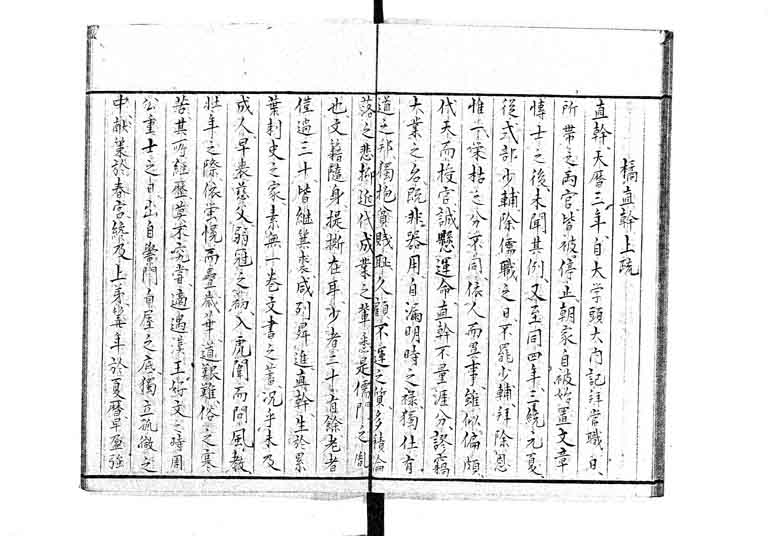 橘直幹上疏
直幹天曆三年自大学頭大内記拜當職日
所帶之兩官皆被停止朝家自被始置文章
博士之後未聞其例又至同四年三統元夏
後式部少輔除儒職之日不罷少輔拜除恩
惟一栄枯之分不同依人而異事雖似偏頗
代天而授官誠懸運命直幹不量涯分謬竊
大業之名既非器用自漏明時之祿獨仕有
道之邦獨抱貧賤恥久顧不運之質多積淪
落之悲抑近代成業之輩悉是儒門之胤
也文籍隨身提撕在耳少者三十有餘老者
僅過三十皆繼箕裘咸列昇進直幹生於累
葉刺史之家素無一巻文書之蓄況乎未及
成人早喪慈父弱冠之齡入虎闈而問風教
壮年之際依螢幌而疊歳華道艱難俗之寒
苦其所經歷莫不究嘗適遇漢王好文之時周
公重士之日出自蓽門白屋之底獨立孤微之
中献策於春宮終及上第算年於夏曆早盈強